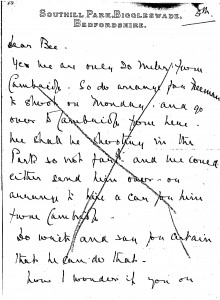 SOUTHILL PARK, BIGGLESWADE,
BEDFORDSHIRE.
Dear Bee.
Yes we are only 30 miles from
Cambridge. So do arrange for
to shoot on Monday. and go
over to Cambridge from here.
We shall be shooting in the
Park so not far. and we could
either send him over - or
arrange to hire a car for him
from Cambridge.
Do write and say you
that he can do that.
how I wonder if you or